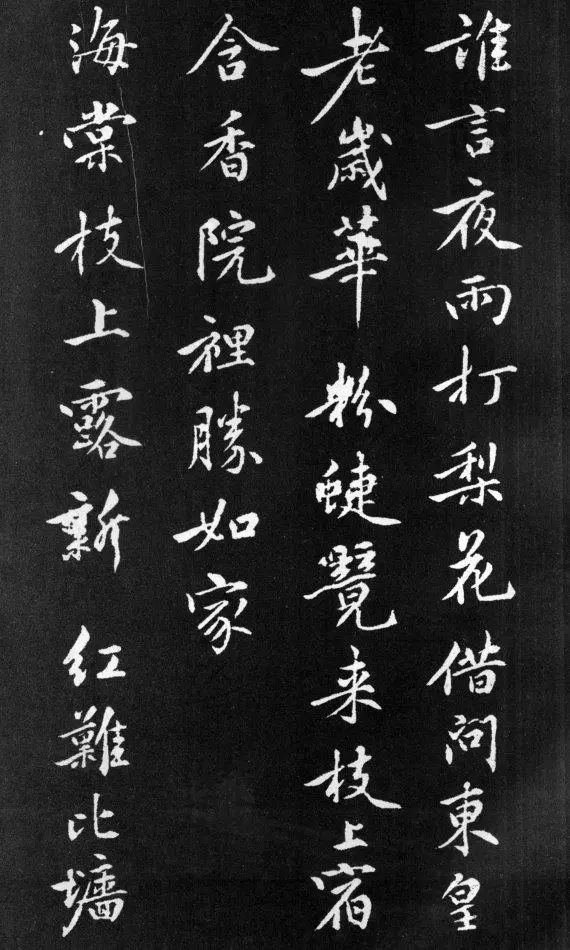 誰言夜雨打梨花借問東皇
老歲華粉蜨覺来枝上宿
含香院裡勝如家
海棠枝上露新紅難比墻